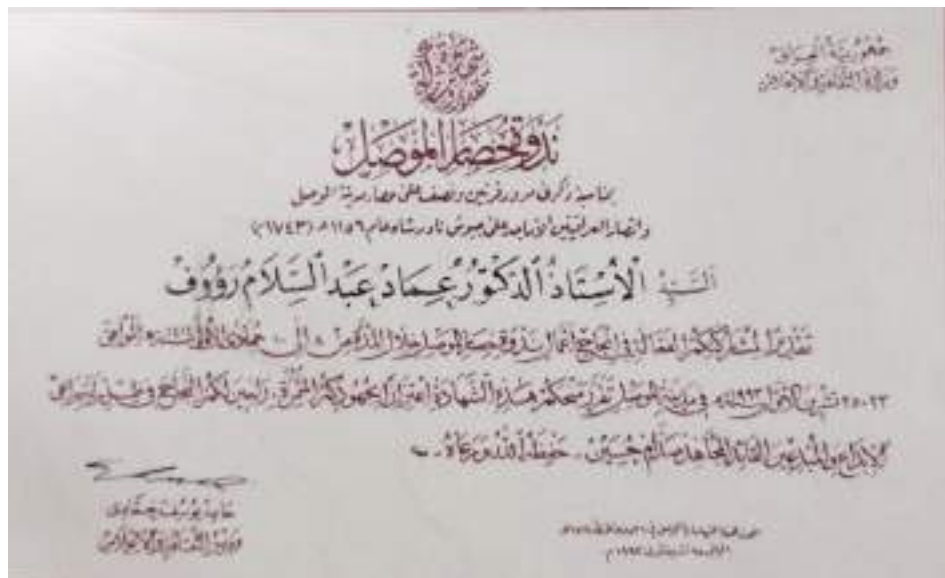 جمهورية العراق
وزارة الثقافة والاعلام
ندوة حصار الموصل
بمناسبة ذكرى مرور قرنين ونصف على حصار مدينة الموصل
وانتصار العراقيين الأباة على جيوش نادر شاه عام ١١٥٦هـ (١٧٤٣م)
السيد الأستاذ الدكتور عماد عبد السلام رؤوف
تقديراً لمشاركتكم الفعالة في انجاح اعمال ندوة حصار الموصل خلال المدة من ٨ الى ١٠ جمادى الأولى الموافق
٢٣-٢٥ تشرين الأول ١٩٩٣ في مدينة الموصل تقرر منحكم هذه الشهادة اعتزازاً بجهودكم المثمرة راجين لكم النجاح في ظل راعي
الابداع والمبدعين القائد المجاهد صدام حسين حفظه الله ورعاه
حامد يوسف حمادي
وزير الثقافة والاعلام